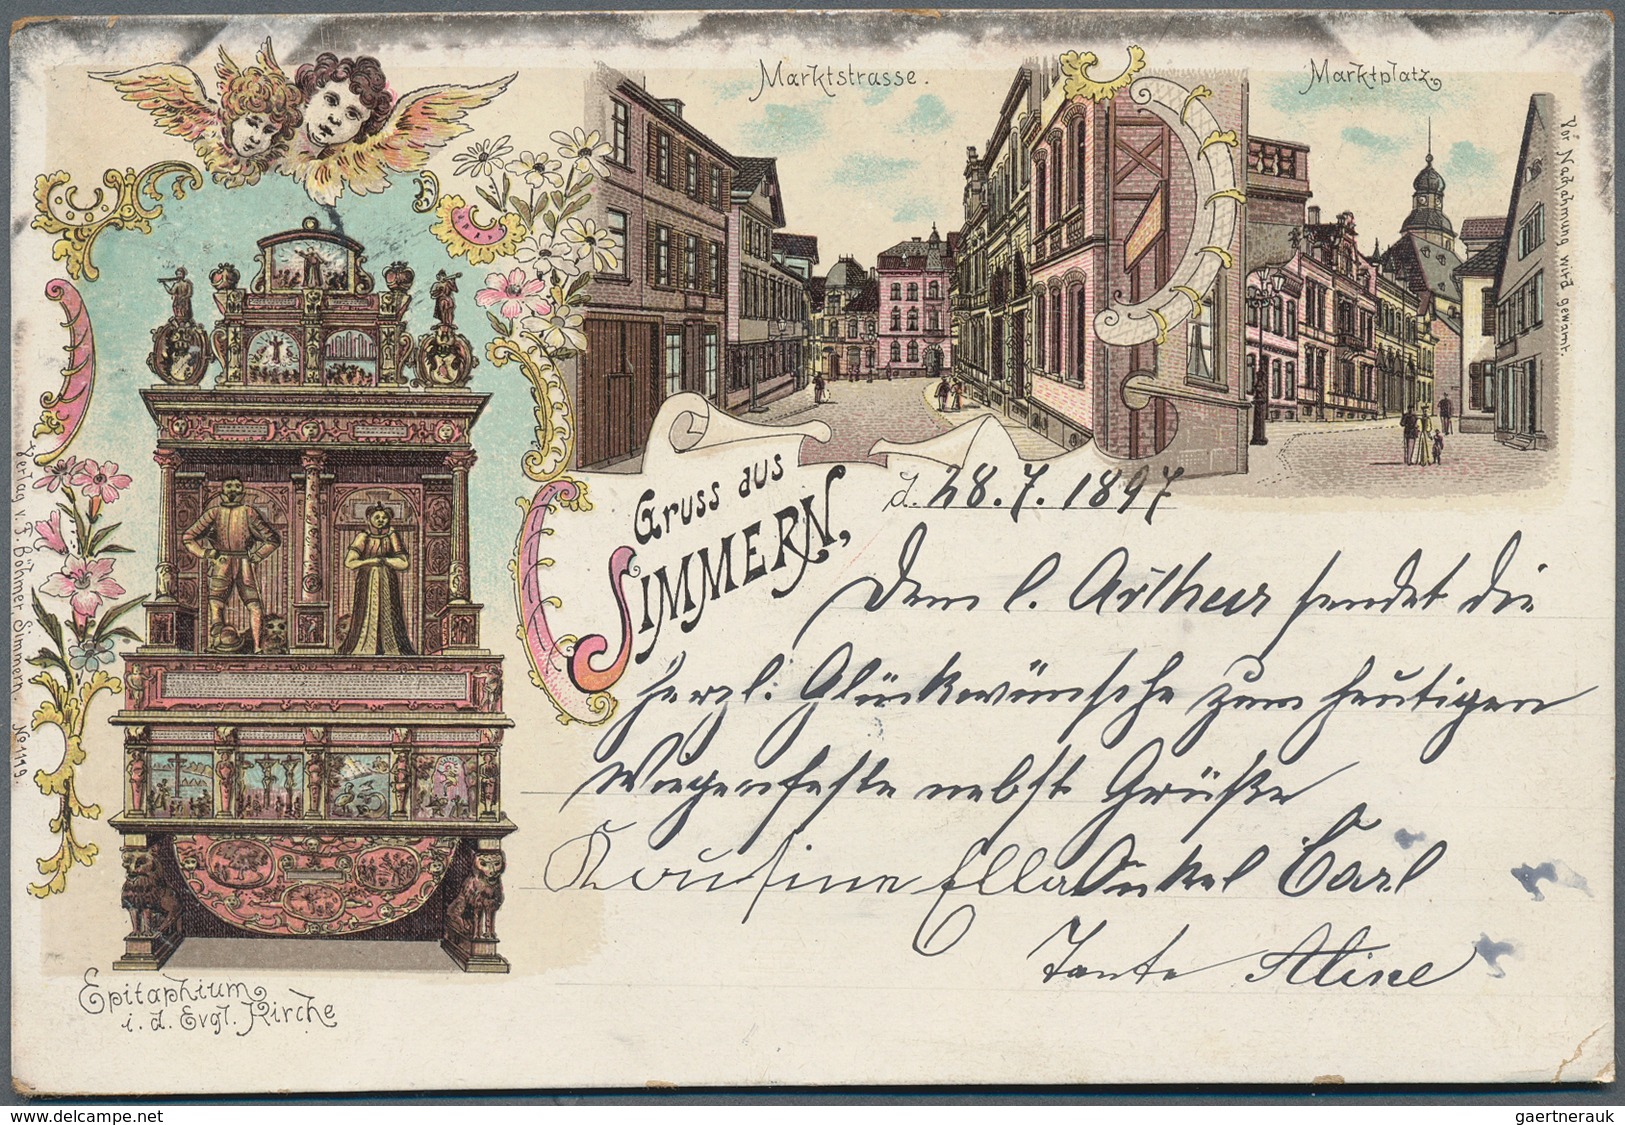 Marktstrasse.
Marktplatz.
Vor Nachahmung wird gewarnt.
Gruss aus
SIMMERN,
d. 28. 7. 1897
Dem l. Arthur sendet die
herzl. Glückwünsche zum heutigen
Wiegenfeste nebst Grüße
Kousine Ella Onkel Carl
Tante Aline
Verlag v. F. Böhmer, Simmern. No 1119.
Epitaphium
i. d. Evgl. Kirche
gaertnerauk
delcampe.net